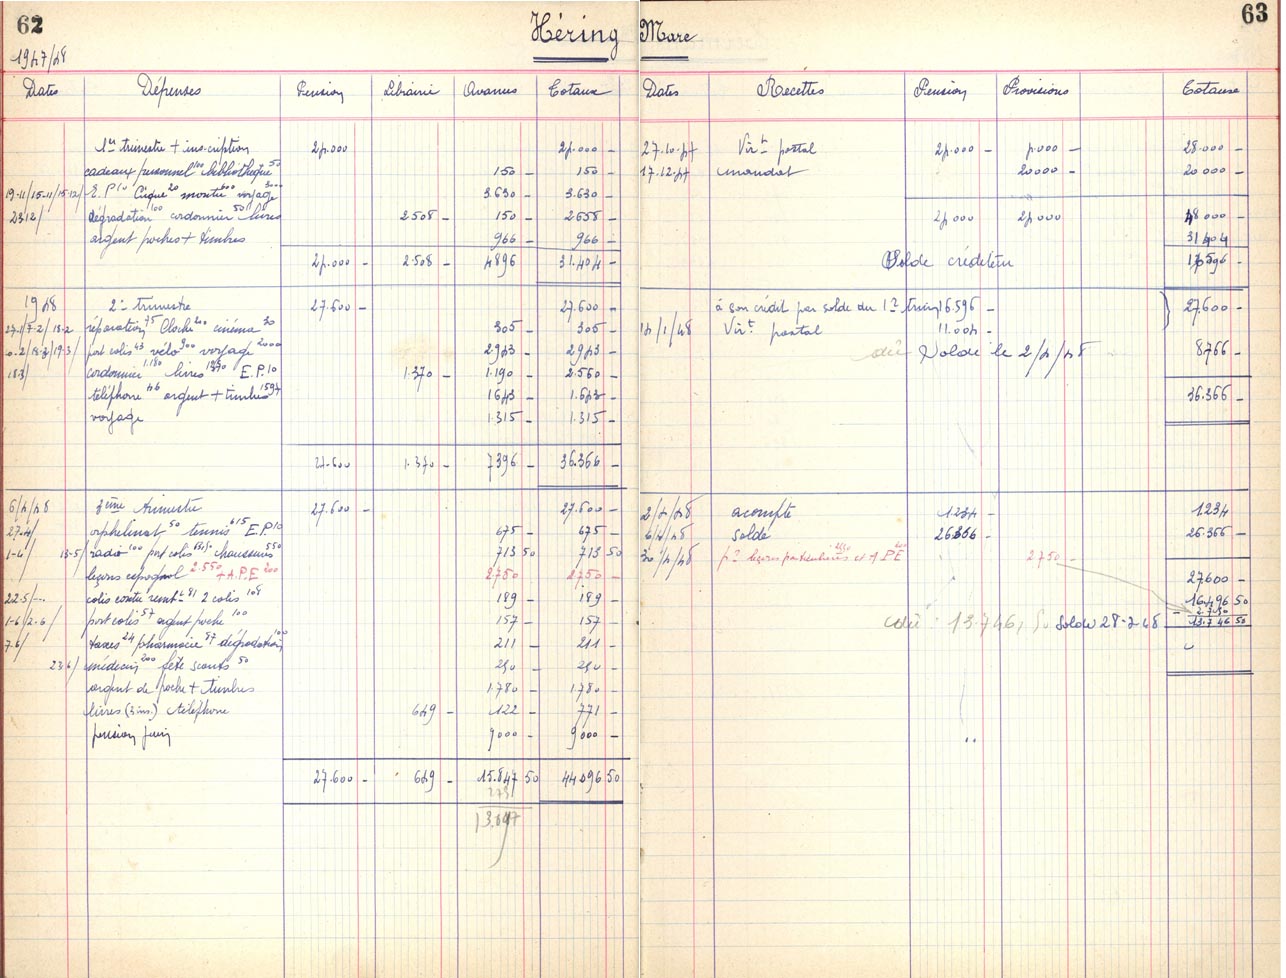 62
1947/48
Héring Marc
63
Dates Dépenses Pension Librairie Avances Totaux
1er trimestre + inscription 24.000 24.000 -
cadeaux personnel 100 bibliothèque 50 150 - 150 -
19-11/15-11/15-12/ E.P 10 Cirque 20 montre 600 voyage 3000 3.630 - 3.630 -
23/12/ dégradation 100 cordonnier 50 livres 2.508 - 150 - 2658 -
argent poches + timbres 966 - 966 -
24.000 - 2.508 - 4896 31.404 -
1948 2e trimestre 27.600 - 27.600 -
27-1/7-2/18-2 réparation 75 Cloche 200 cinéma 30 305 - 305 -
port colis 43 vélo 900 voyage 2000 2943 - 2943 -
18.3/ cordonnier 1.180 livres 1370 E.P.10 1.370 - 1.190 - 2.560 -
téléphone 46 argent + timbres 1597 1643 - 1.643 -
voyage 1.315 - 1.315 -
27.600 - 1.370 - 7396 - 36.366 -
6/4/48 3ème trimestre 27.600 - 27.600 -
27-4/ orphelinat 50 tennis 615 E.P.10 675 - 675 -
13-5/ radio 100 port colis chaussures 550 713 50 713 50
leçons espagnol 2.550 + A.P.E 200 2750 - 2750 -
22-5/-- colis contre rembt 81 2 colis 108 189 - 189 -
1-6/2-6/ port colis 57 argent poche 100 157 - 157 -
7-6/ taxes 24 pharmacie 87 dégradation 100 211 - 211 -
23/6/ médecin 200 fête scouts 50 250 - 250 -
argent de poche + timbres 1.780 - 1.780 -
livres (3 ins.) téléphone 649 - 122 - 771 -
pension juin 9000 - 9000 -
27.600 - 649 - 15.847 50 44.096 50
13.097
Dates Recettes Pension Provisions Totaux
27.10.47 Virt postal 24.000 - 4.000 - 28.000 -
17.12.47 mandat 20000 - 20000 -
24000 24000 48000 -
31404
Solde créditeur 16596 -
à son crédit par solde du 1er trim 16.596 - 27.600 -
14/1/48 Virt postal 11.004 -
dû Soldé le 2/4/48 8766 -
36.366 -
2/4/48 acompte 1234 - 1234
6/4/48 solde 26366 - 26.366 -
30/4/48 pr leçons particulières 2550 et A.P.E 200 2750 -
27600 -
16496 50
- 2.750
dû : 13.746,50 Solde 28-7-48 13.746 50